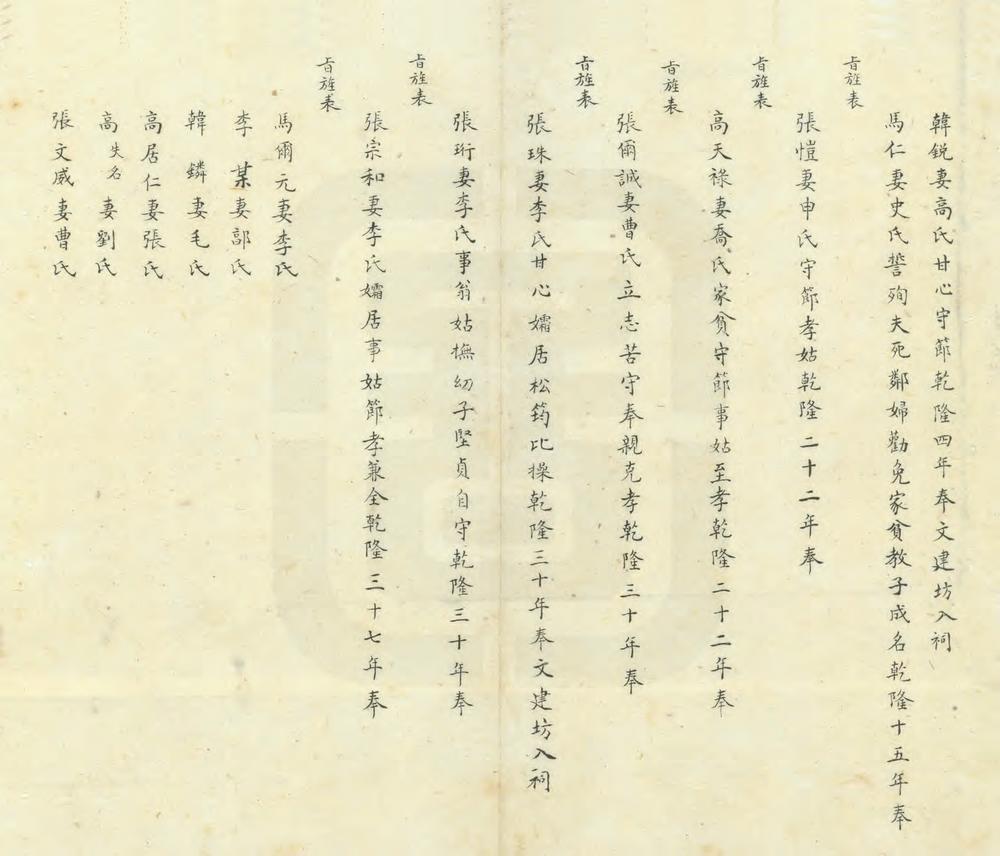 韓鋭妻高氏甘心守節乾隆四年奉文建坊入祠
馬仁妻史氏誓殉夫死鄰婦勸免家貧教子成名乾隆十五年奉
旨旌表
張愷妻申氏守節孝姑乾隆二十二年奉
旨旌表
高天祿妻喬氏家貧守節事姑至孝乾隆二十二年奉
旨旌表
張爾誠妻曹氏立志苦守奉親克孝乾隆三十年奉
旨旌表
張珠妻李氏甘心孀居松筠比操乾隆三十年奉文建坊入祠
張珩妻李氏事翁姑撫幼子堅貞自守乾隆三十年奉
旨旌表
張宗和妻李氏孀居事姑節孝兼全乾隆三十七年奉
旨旌表
馬爾元妻李氏
李某妻郭氏
韓鏻妻毛氏
高居仁妻張氏
高失名妻劉氏
張文威妻曹氏